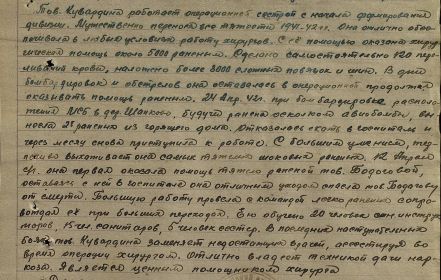 Тов. Кувардина работает операционной сестрой с начала формирования
дивизии. Мужественно перенося все тяжести 1941-42 гг. Она отлично обес-
печивала в любых условиях работу хирургов. С её помощью оказана хирур-
гическая помощь около 5000 раненым. Сделано самостоятельно 120 пер-
ливаний крови, наложено более 3000 сложных повязок и шин. В дни
бомбардировок и обстрелов она оставалась в операционной продолжая
оказывать помощь раненым. 24 апр. 42г. при бомбардировке располо-
жения МСБ в дер. будучи ранена осколком авиабомбы, вы-
несла 28 раненых из горящего дома. Отказалась ехать в госпиталь и
через месяц снова приступила к работе. С большим умением, тер-
пеливо выхаживает она самых тяжелых шоковых раненых. 12 апреля
с/г. она первая оказала помощь тяжело раненой тов. Бодаговой,
оставаясь с ней в госпитале она отличным уходом спасла тов. Бодагову
от смерти. Большую работу провела с командой легко раненых сопро-
вождая её при больших переходах. Ею обучено 20 человек сан. инструк-
торов, 15 чел. санитаров, 5 человек сестер. В последних наступательных
боях тов. Кувардина заменяет недостающих врачей, ассистируя во
время операции хирургом. Отлично владеет техникой дачи нар-
коза. Является ценным помощником хирурга